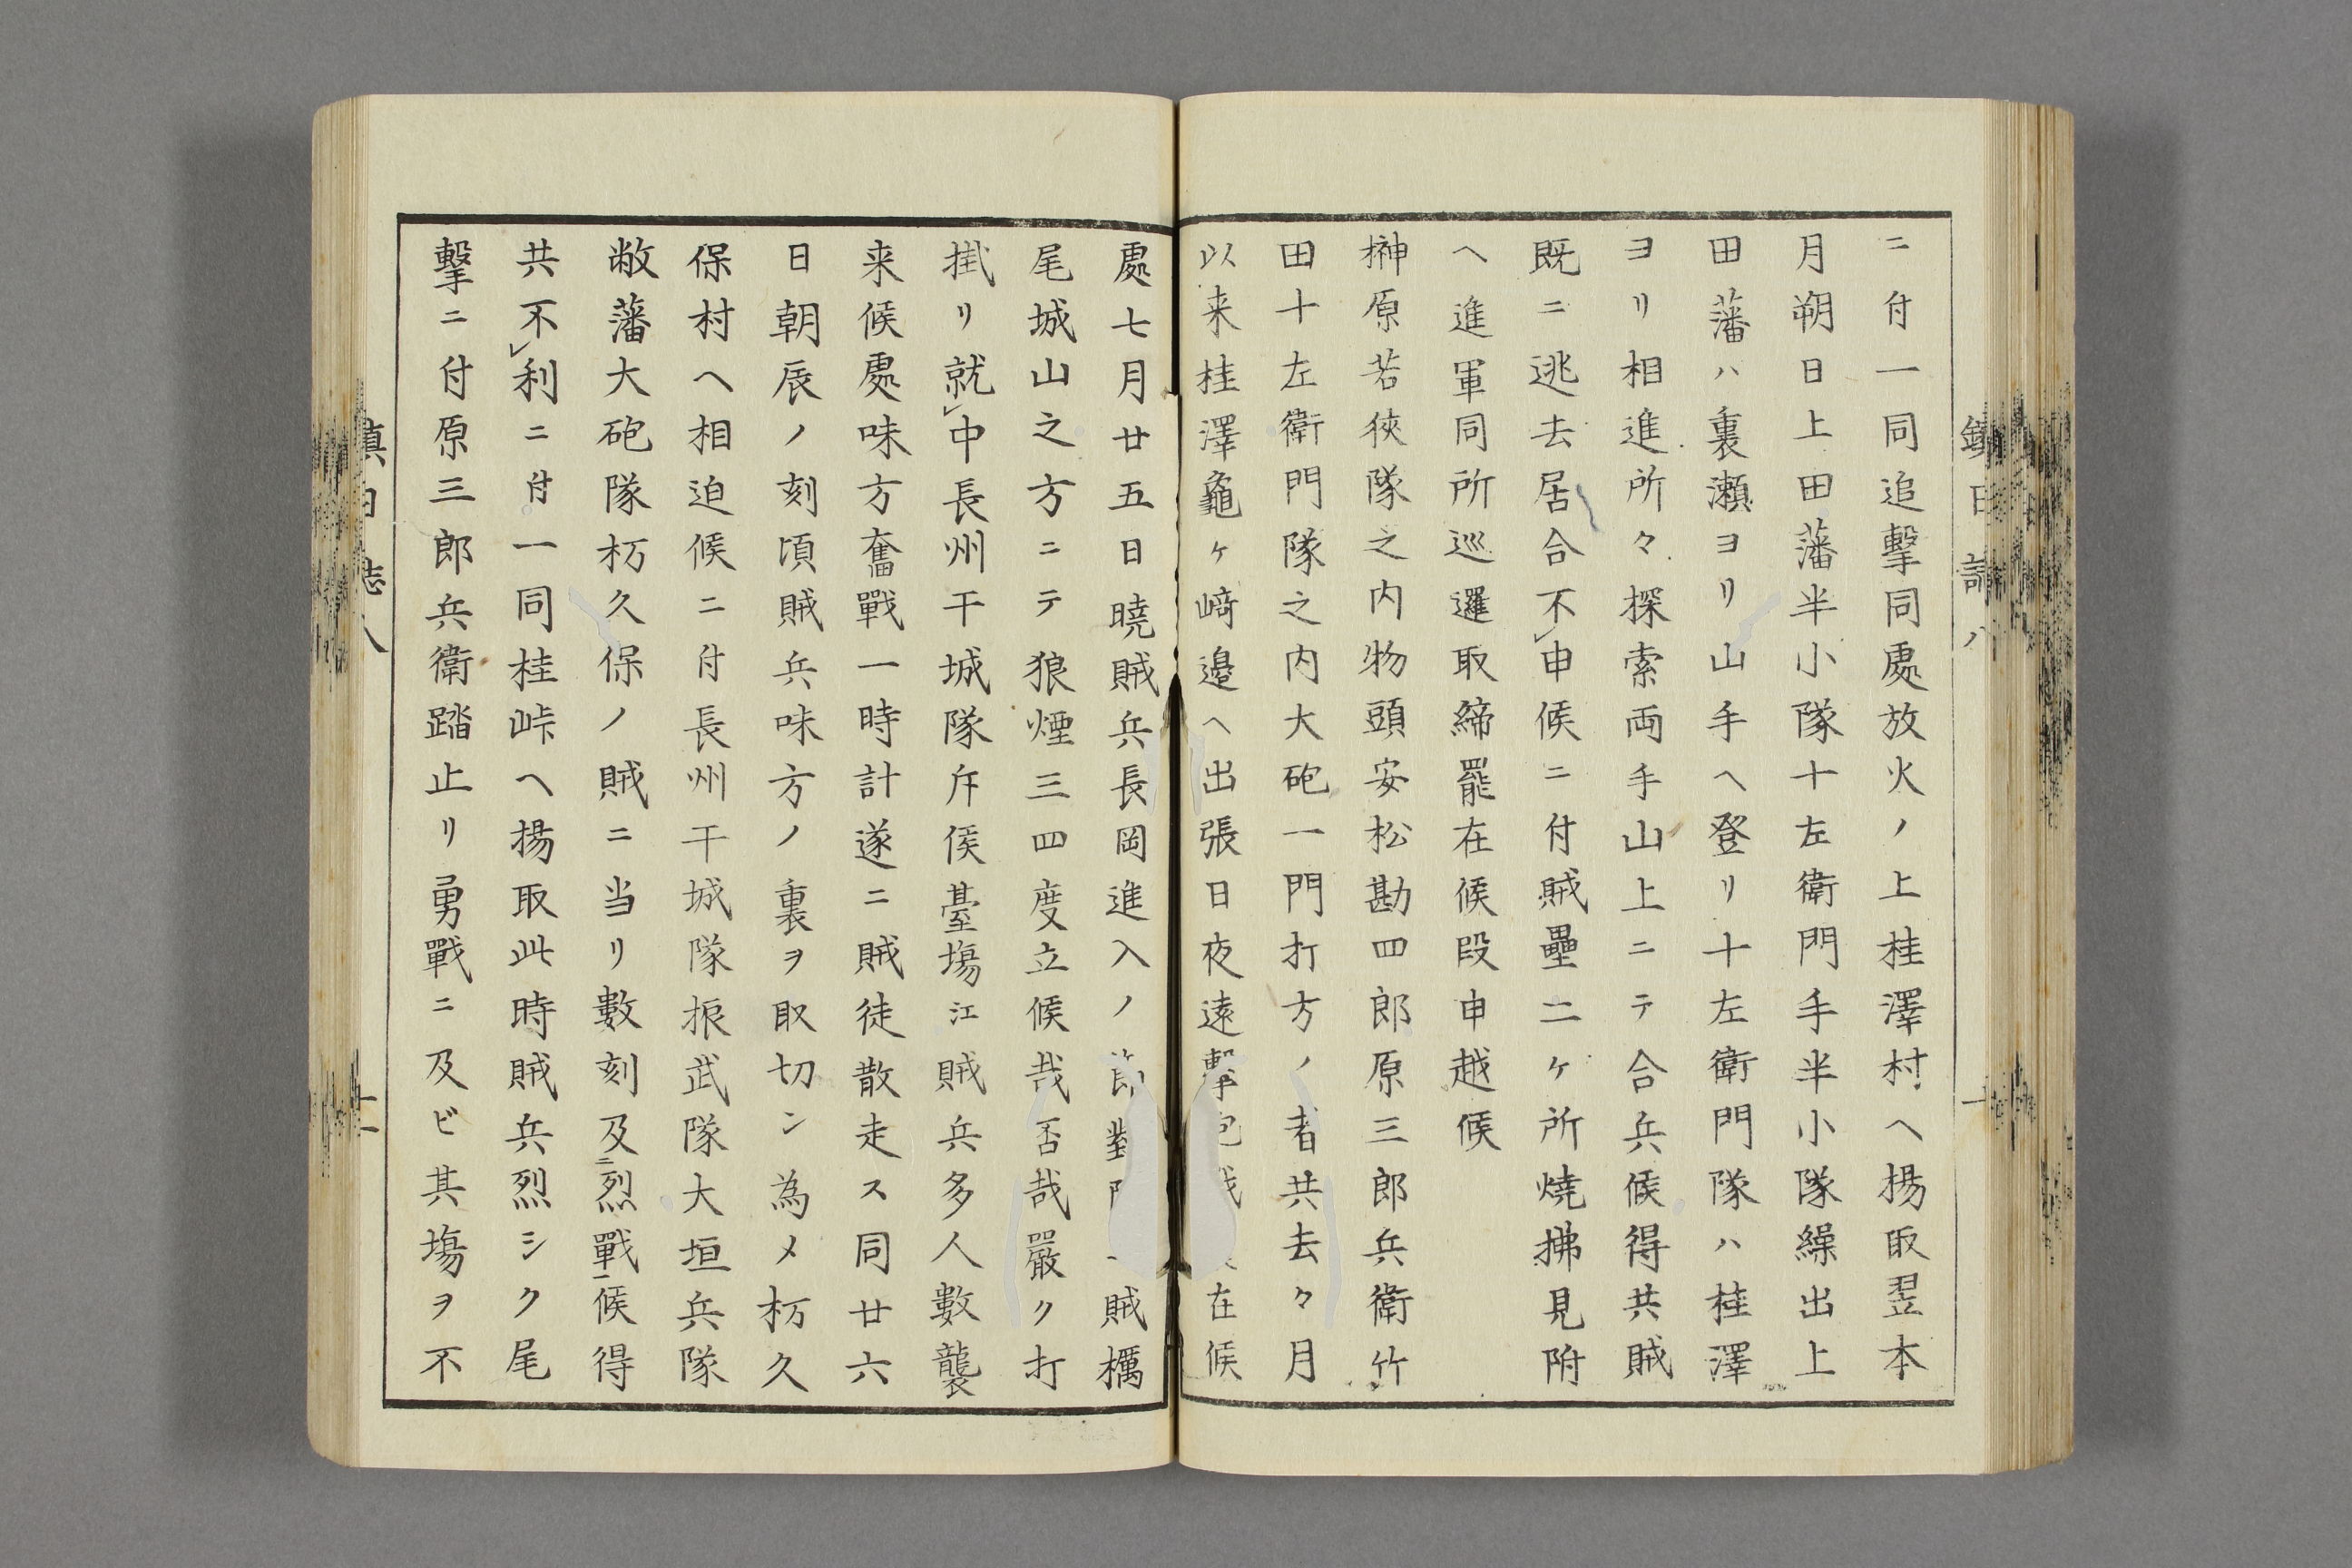 ニ付一同追擊同處放火ノ上桂澤村ヘ揚取翌本
月朔日上田藩半小隊十左衛門手半小隊繰出上
田藩ハ裏瀬ヨリ山手ヘ登リ十左衛門隊ハ桂澤
ヨリ相進所々探索両手山上ニテ合兵候得共賊
既ニ逃去居合不申候ニ付賊壘二ヶ所焼拂見附
ヘ進軍同所巡邏取締罷在候段申越候
榊原若狹隊之内物頭安松勘四郎原三郎兵衛竹
田十左衛門隊之内大砲一門打方ノ者共去々月
以来桂澤龜ヶ﨑邉ヘ出張日夜遠擊在候
處七月廿五日曉賊兵長岡進入ノ節對賊櫔
尾城山之方ニテ狼煙三四度立候哉否哉嚴ク打
掛リ就中長州干城隊斥候臺塲江賊兵多人數襲
来候處味方奮戰一時計遂ニ賊徒散走ス同廿六
日朝辰ノ刻頃賊兵味方ノ裏ヲ取切ン為メ杤久
保村ヘ相迫候ニ付長州干城隊振武隊大垣兵隊
敝藩大砲隊杤久保ノ賊ニ当リ數刻及ニ烈戰一候得
共不利ニ付一同桂峠ヘ揚取此時賊兵烈シク尾
擊ニ付原三郎兵衛踏止リ勇戰ニ及ビ其塲ヲ不